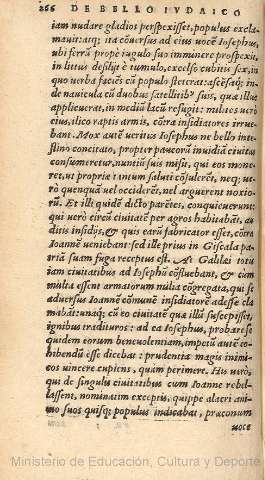 266 DE BELLO IVDAICO
iam nudare gladios perspexisset, populus excla
mauit: atq; ita cōuersus ad eius vocē Iosephus,
ubi ferrū propè iugulo suo imminere prospexit,
in littus desiluit è tumulo, excelso cubitis sex, in
quo verba faciēs cū populo steterat: ascēsaq; in-
de nauicula cū duobus satellitib' suis, quæ illuc
applicuerat, in mediū lacū refugit: milites uerò
eius, ilico raptis armis, cōtra insidiatores irrue-
bant. Mox autē ueritus Iosephus ne bello inte-
stino concitato, propter paucorū inuidiā ciuitas
consumeretur, nuntiū suis misit, qui eos mone-
ret, ut propriæ interim saluti cōsulerēt, neq; ue-
rò quenquā uel occiderēt, nel arguerent noxio-
rū. Et illi quidē dicto parētes, conquieuerunt:
qui uerò circū ciuitatē per agros habitabāt, au-
ditis insidijs, & quis earū fabricator esset, cōtra
Ioannē veniebant: sed ille prius in Giscala pa-
triā suam fuga receptus est. At Galilæi totius
iam ciuitatibus ad Iosephū cōfluebant, & cum
multa essent armatorum milia cōgregata, qui se
aduersus Ioannē cōmunē insidiatorē adesse cla
mabāt: unaq; cū eo ciuitatē quæ illū suscepisset,
ignibus tradituros: ad ea Iosephus, probare se
quidem eorum beneuolentiam, impetū autē co-
hibendū esse dicebat: prudentia magis inimi-
cos uincere cupiens, quàm perimere. His uerò,
qui de singulis ciuitatibus cum Ioanne rebel-
lassent, nominatim exceptis, quippe alacri ani-
mo suos quisq; populus indicabat, præconum
uoce
Ministerio de Educación, Cultura y Deporte